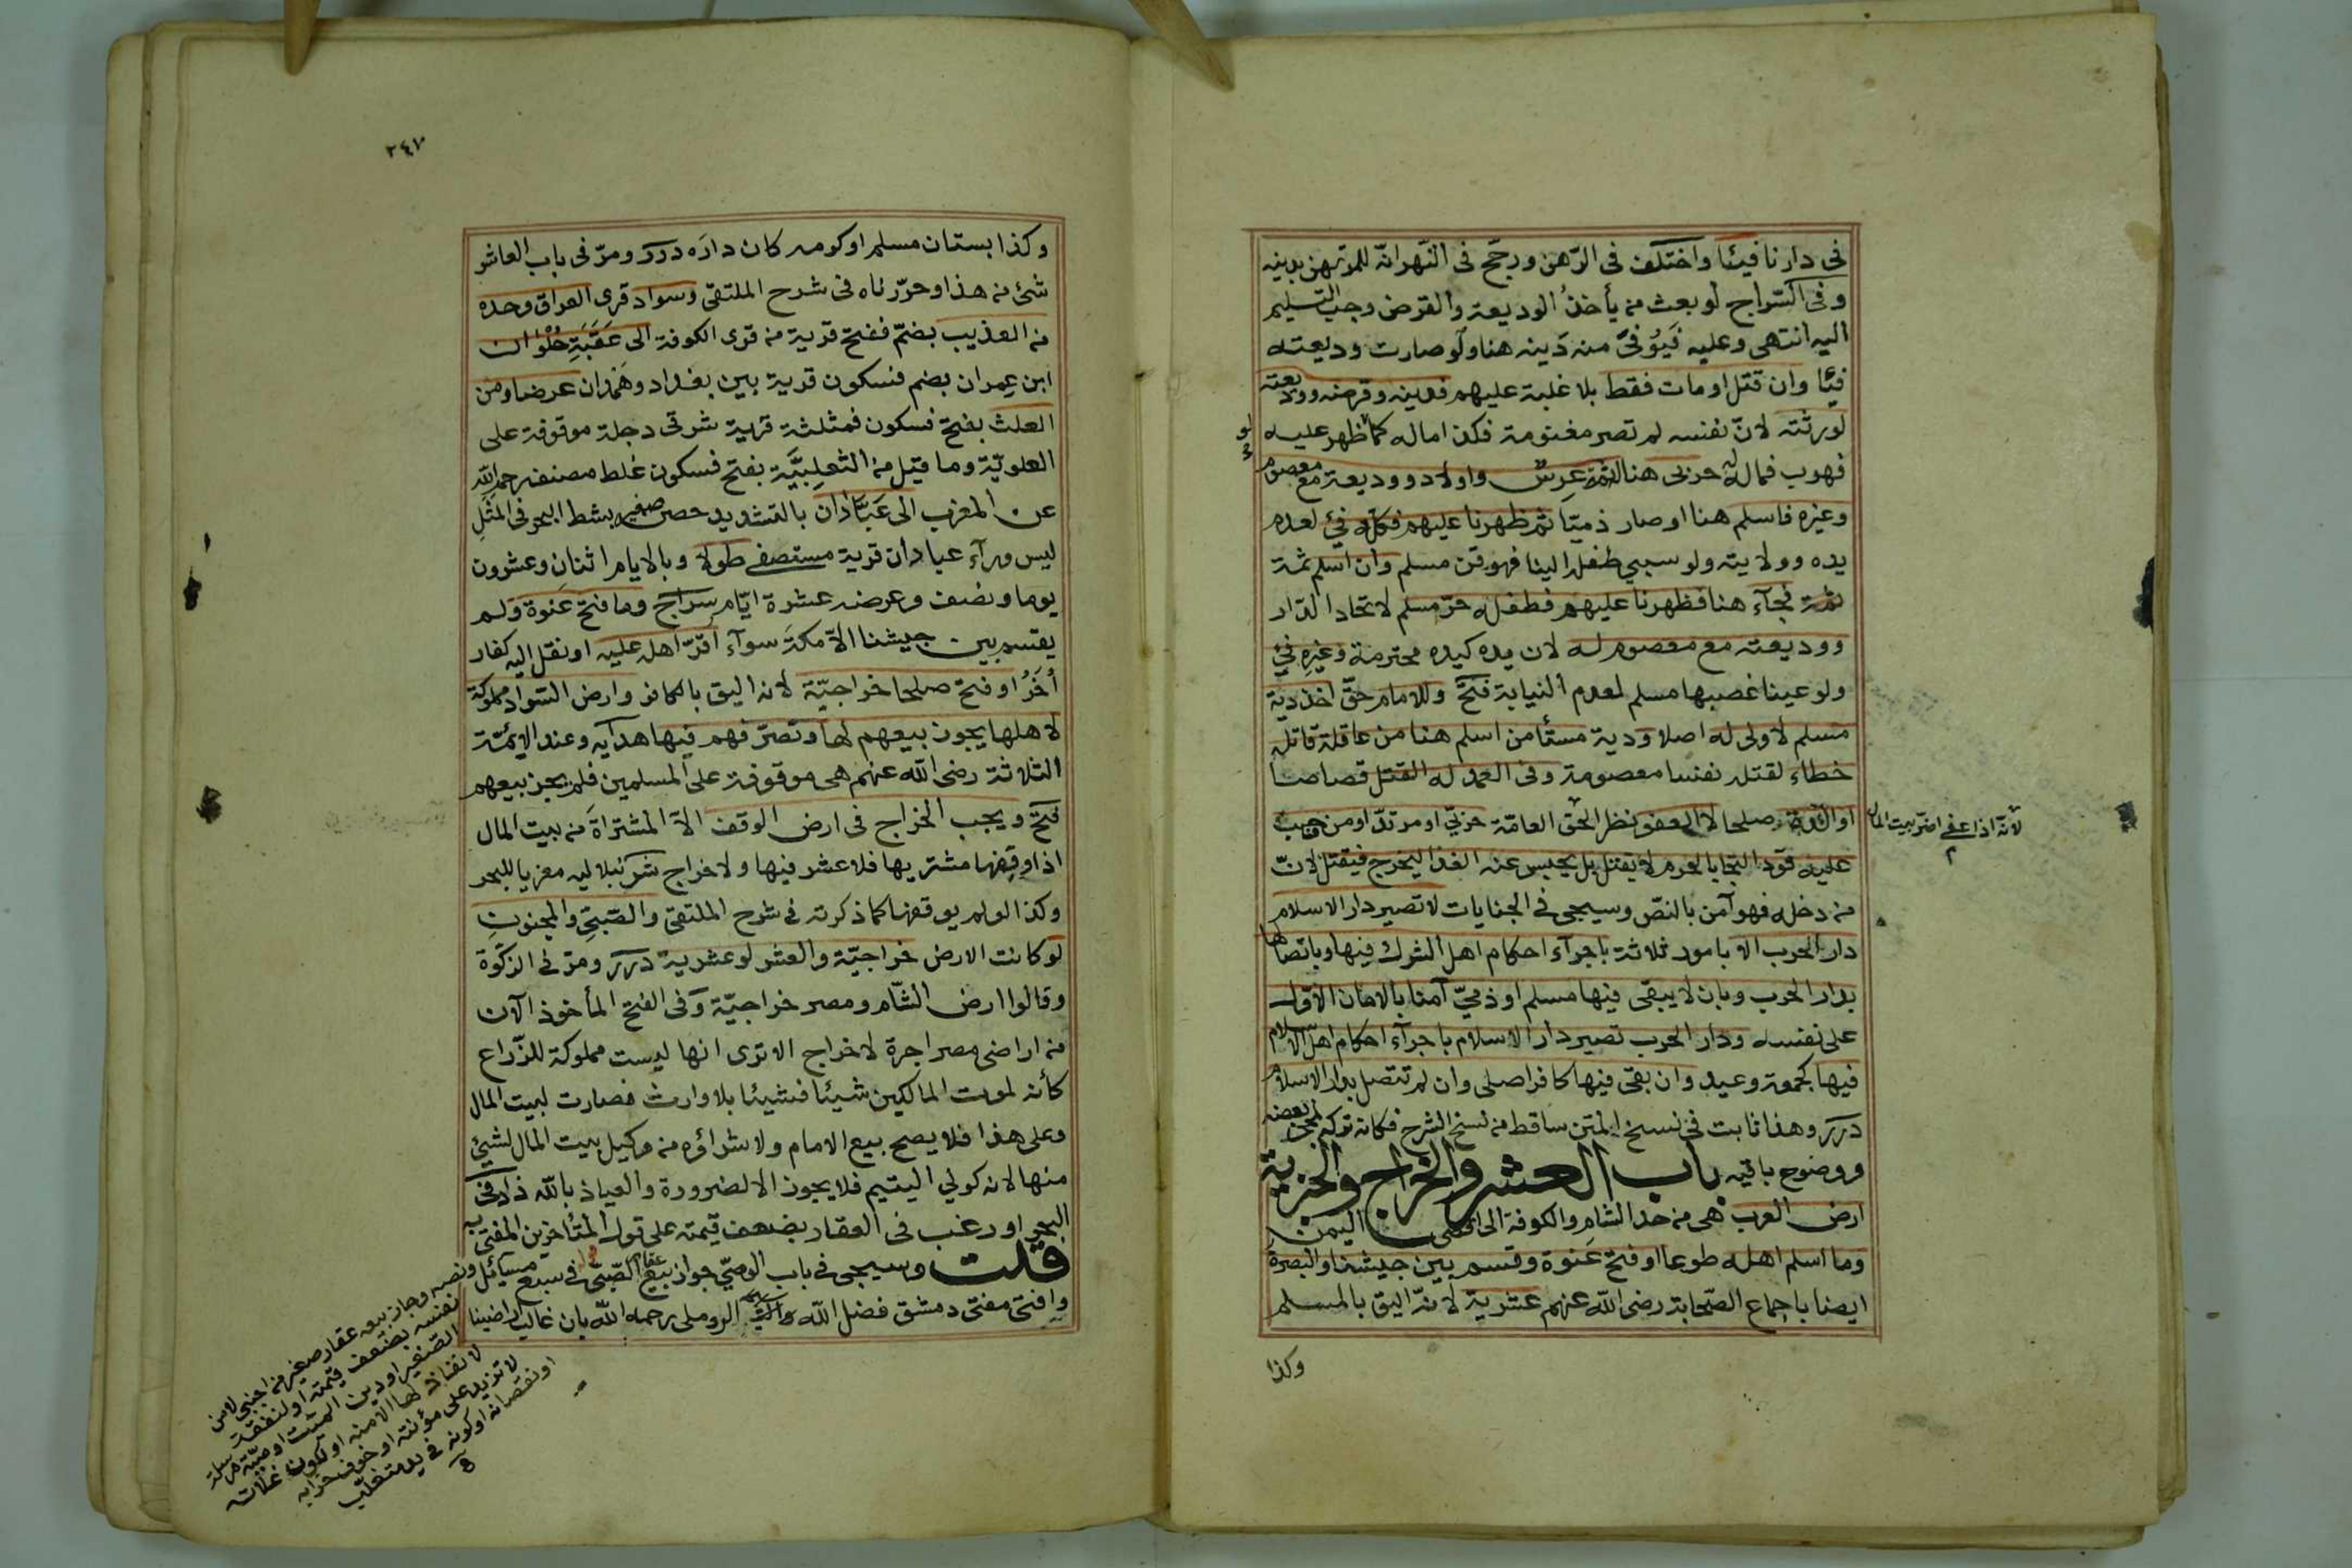 فى دارنا فيئا واختلف فى الرّهن ورجّح فى النّهر انّه للمرتهن بدينه
وفى السّراج لو بعث من يأخذ الوديعة والقرض وجب التسليم
اليه انتهى وعليه فيُوفّى منه دَينه هنا ولو صارت وديعته
فيًا وان قتل او مات فقط بلا غلبة عليهم فدينه وقرضه ووديعته
لورثته لانّ نفسه لم تصر مغنومة فكذا ماله كما لو ظهر عليه
فهرب فماله حربى هنا له ثمّة عِرسٌ واولاد ووديعة مع معصوم
وغيره فاسلم هنا او صار ذميّا ثم ظهرنا عليهم فكلّه فئ لعدم
يده وولايته ولو سبى طفله الينا فهو قن مسلم وان اسلم ثمة
ثمة فجآء هنا فظهرنا عليهم فطفله حرّ مسلم لاتحاد الدّار
ووديعته مع معصوم له لان يده كيده محترمة وغيره فئ
ولو عينا غصبها مسلم لعدم النيابة فتح وللامام حقّ اخذ دية
مسلم لا ولى له اصلا ودية مستأمن اسلم هنا من عاقلة قاتله
خطاء لقتله نفسا معصومة وفى العمد له القتل قصاصا
او الدّية صلحا لا العفو نظرا لحق العامّة حربىّ او مرتدّ او من وجب
لانّه اذا عفى اضرّ بيت المال
عليه قَود التجأ بالحرم لا يقتل بل يحبس عنه الغذا ليخرج فيقتل لانّ
من دخله فهو آمن بالنصّ وسيجى فى الجنايات لا تصير دار الاسلام
دار الحرب الا بامور ثلاثة باجرآء احكام اهل الشرك فيها وباتصالها
بدار الحرب وبان لا يبقى فيها مسلم او ذمىّ آمنا بالامان الاوّل
على نفسه ودار الحرب تصير دار الاسلام باجرآء احكام اهل الاسلام
فيها كجمعة وعيد وان بقى فيها كافر اصلى وان لم تتصل بدار الاسلام
درر وهذا ثابت فى نسخ المتن ساقط من نسخ الشرح فكانه تركه لمجئ بعضه
ووضوح باقيه باب العشر والخراج والجزية
ارض العرب هى من حد الشام والكوفة الى اقصى اليمن
وما اسلم اهله طوعا او فتح عنوة وقسم بين جيشنا والبصرة
ايضا باجماع الصّحابة رضى الله عنهم عشرية لانّه اليق بالمسلم
وكذا
٢٤٧
وكذا بستان مسلم او كومه كان دارَه درر ومرّ فى باب العاشر
شئ من هذا وحرّرناه فى شرح الملتقى وسواد قرى العراق وحده
من العذيب بضمّ ففتح قرية من قرى الكوفة الى عَقَبَةِ حُلْوَان
ابن عِمران بضم فسكون قرية بين بغداد وهَمَدان عرضا ومن
العلث بفتح فسكون فمثلثة قرية شرقى دجلة موقوفة على
العلويّة وما قيل من الثعلبيَّة بفتح فسكون غلط مصنف رحمه الله
عن المغرب الى عَبّادَان بالتشديد حصن صغير بشط البحر فى المثل
ليس ورآء عبادان قرية مستصفى طولا وبالايام اثنان وعشرون
يوما ونصف وعرضه عشرة ايّام سراج وما فتح عَنوة ولم
يقسم بين جيشنا الاّ مكة سوآء اُقرّ اهله عليه او نقل اليه كفار
اُخَرُ او فتح صلحا خراجيّة لانه اليق بالكافر وارض السّواد مملوكة
لاهلها يجوز بيعهم لها وتصرّفهم فيها هدايه وعند الايمّة
الثلاثة رضى الله عنهم هى موقوفة على المسلمين فلم يجز بيعهم
فتح ويجب الخراج فى ارض الوقف الاّ المشتراة من بيت المال
اذا وقفها مشتريها فلا عشر فيها ولا خراج شرنبلاليه معزيا للبحر
وكذا لو لم يوقفها كما ذكرته فى شرح الملتقى والصّبىّ والمجنون
لو كانت الارض خراجيّة والعشر لو عشرية درر ومرّ فى الزكوة
وقالوا ارض الشّام ومصر خراجيّة وفى الفتح المأخوذ الآن
من اراضى مصر اجرة لا خراج الا ترى انها ليست مملوكة للزّراع
كأنه لموت المالكين شيئا فشيئا بلا وارث فصارت لبيت المال
وعلى هذا فلا يصح بيع الامام ولا شراؤه من وكيل بيت المال لشئ
منها لانه كولي اليتيم فلا يجوز الا لضرورة والعياذ بالله زاد فى
البحر او رغب فى العقار بضعف قيمته على قول المتأخرين المفتى به
قلت وسيجى فى باب الوصىّ جواز بيع عقار الصّبىّ فى سبع مسايل
وافتى مفتى دمشق فضل الله الرومى رحمه الله بان غالب اراضينا
ونصه وجاز بيعه عقار صغير من اجنبى لا من
نفسه بضعف قيمته او لنفقة
الصغير او دين الميت او وصيّة مرسلة
لا نفاذ لها الا منه او لكون غلاته
لا تزيد على مؤنته او خوف خرابه
او نقصانه او كونه فى يد متغلّب